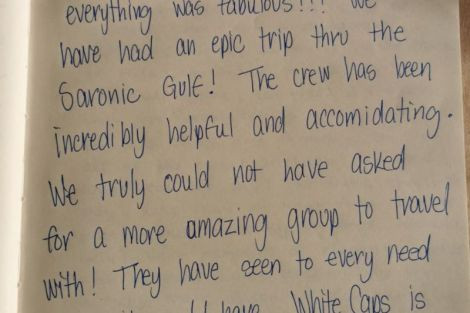 everything was fabulous!!! We
have had an epic trip thru the
Saronic Gulf! The crew has been
incredibly helpful and accomidating.
We truly could not have asked
for a more amazing group to travel
with! They have seen to every need
have White Caps is